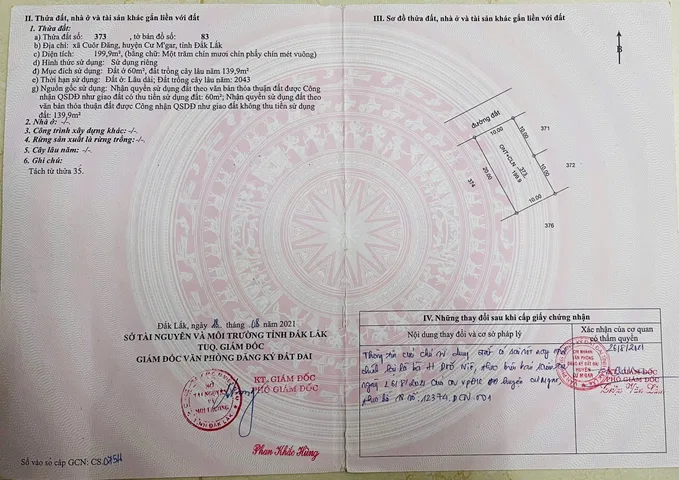 II. Thửa đất, nhà ở và tài sản khác gắn liền với đất
1. Thửa đất:
a) Thửa đất số: 373, tờ bản đồ số: 83
b) Địa chỉ: xã Cuôr Đăng, huyện Cư M'gar, tỉnh Đắk Lắk
c) Diện tích: 199,9m², (bằng chữ: Một trăm chín mươi chín phẩy chín mét vuông)
d) Hình thức sử dụng: Sử dụng riêng
đ) Mục đích sử dụng: Đất ở 60m², đất trồng cây lâu năm 139,9m²
e) Thời hạn sử dụng: Đất ở: Lâu dài; Đất trồng cây lâu năm: 2043
g) Nguồn gốc sử dụng: Nhận quyền sử dụng đất theo văn bản thỏa thuận đất được Công
nhận QSDĐ như giao đất có thu tiền sử dụng đất: 60m²; Nhận quyền sử dụng đất theo
văn bản thỏa thuận đất được Công nhận QSDĐ như giao đất không thu tiền sử dụng
đất: 139,9m²
2. Nhà ở: -/-
3. Công trình xây dựng khác: -/-
4. Rừng sản xuất là rừng trồng: -/-
5. Cây lâu năm: -/-
6. Ghi chú:
Tách từ thửa 35.
Đắk Lắk, ngày 18 tháng 08 năm 2021
SỞ TÀI NGUYÊN VÀ MÔI TRƯỜNG TỈNH ĐẮK LẮK
TUQ. GIÁM ĐỐC
GIÁM ĐỐC VĂN PHÒNG ĐĂNG KÝ ĐẤT ĐAI
KT. GIÁM ĐỐC
PHÓ GIÁM ĐỐC
SỞ
TÀI NGUYÊN
VÀ
MÔI TRƯỜNG
TỈNH ĐẮK LẮK
Phan Khắc Hùng
Số vào sổ cấp GCN: CS
III. Sơ đồ thửa đất, nhà ở và tài sản khác gắn liền với đất
B
đường đất
10.00
371
372
374
20.00
ONT+CLN
373
199.9
20.00
10.00
376
IV. Những thay đổi sau khi cấp giấy chứng nhận
Nội dung thay đổi và cơ sở pháp lý
Xác nhận của cơ quan
có thẩm quyền
26/8/2021
ngày 26/8/2021 của huyện
hồ sơ số: 12374
CHI NHÁNH
VĂN PHÒNG
ĐĂNG KÝ ĐẤT ĐAI
HUYỆN
CƯ M'GAR
GIÁM ĐỐC
PHÓ GIÁM ĐỐC